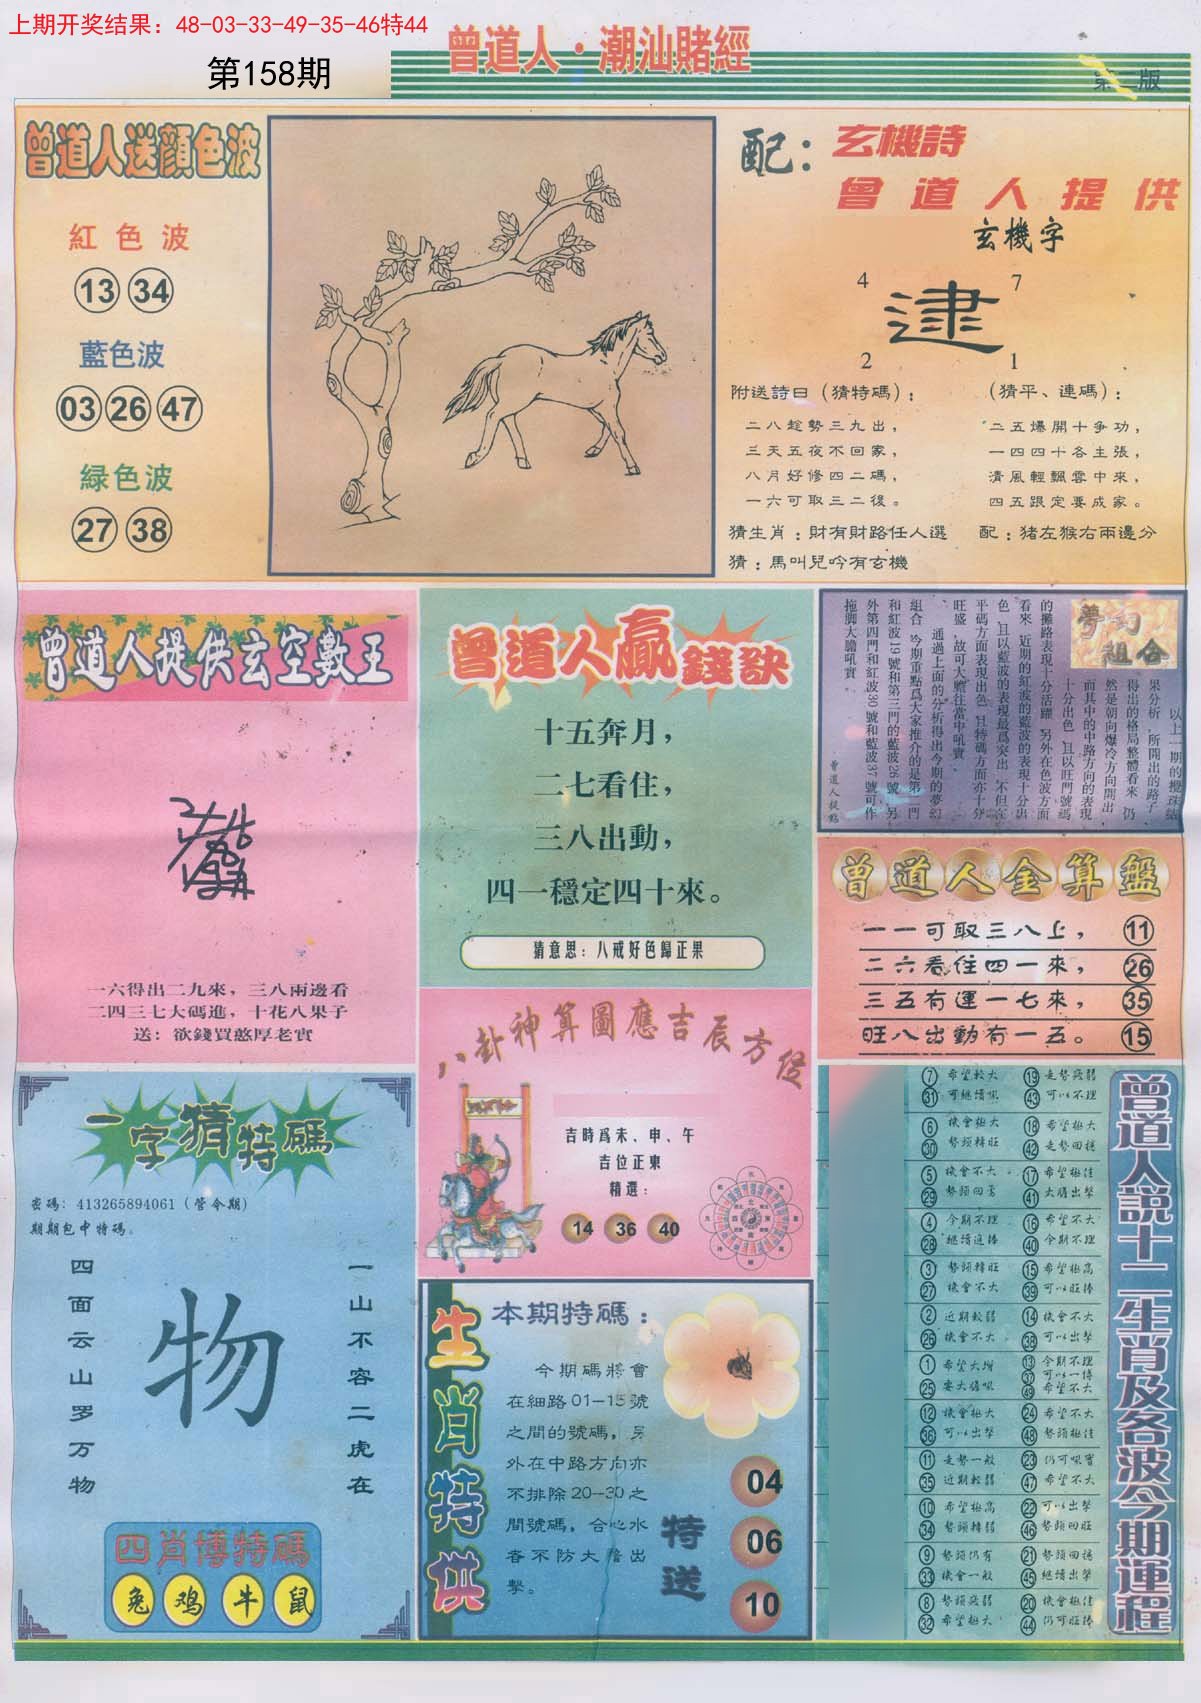 上期开奖结果：48-03-33-49-35-46特44
第158期
曾道人·潮汕賭經
第二版
曾道人送顔色波
紅色波
13 34
藍色波
03 26 47
緑色波
27 38
配：玄機詩
曾道人提供
玄機字
4 7
逮
2 1
附送詩曰（猜特碼）：
二八趁勢三九出，
三天五夜不回家，
八月好修四二碼，
一六可取三二後。
（猜平、連碼）：
二五爆開十争功，
一四四十各主張，
清風輕飄雲中來，
四五跟定要成家。
猜生肖：財有財路任人選
配：猪左猴右兩邊分
猜：馬叫兒吟有玄機
曾道人提供玄空數王
一六得出二九來，三八兩邊看
二四三七大碼進，十花八果子
送：欲錢買憨厚老實
曾道人贏錢訣
十五奔月，
二七看住，
三八出動，
四一穩定四十來。
猜意思：八戒好色歸正果
夢幻組合
以上一期的攪珠結
果分析，所開出的路子
得出的格局整體看來，仍
然是朝向爆冷方向開出，
而其中的中路方向的表現
十分出色，且以旺門號碼
的攤路表現十分活躍，另外在色波方面
看來，近期的紅波的藍波的表現十分出
色，且以藍波的表現最爲突出，不但在
平碼方面表現出色，且特碼方面亦十分
旺盛，故可大膽往當中吼寶。
通過上面的分析得出今期的夢幻
組合，今期重點爲大家推介的是第二門
和紅波19號和第三門的藍波26號，另
外第四門和紅波30號和藍波37號可作
拖脚大膽吼實
曾道人提點
曾道人金算盤
一一可取三八上， 11
二六看住四一來， 26
三五有運一七來， 35
旺八出動有一五。 15
八卦神算圖應吉辰方位
吉時爲未、申、午
吉位正東
精選：
14 36 40
一字猜特碼
密碼：413265894061（管令期）
期期包中特碼。
四面云山罗万物
物
一山不容二虎在
四肖博特碼
兔 鸡 牛 鼠
生肖特供
本期特碼：
今期碼將會
在細路01-15號
之間的號碼，另
外在中路方向亦
不排除20-30之
間號碼，合心水
者不防大膽出
擊。
特送
04
06
10
曾道人説十二生肖及各波今期運程
7 希望較大 19 走勢疲弱
31 可繼續吼 43 可以不理
6 機會極大 18 希望極大
30 勢頭轉旺 42 走勢回穩
5 機會不大 17 希望極佳
29 勢頭回落 41 大膽出擊
4 今期不理 16 希望不大
28 繼續追捧 40 今期不理
3 勢頭轉旺 15 希望極高
27 機會不大 39 可以旺捧
2 近期較弱 14 機會不大
26 機會不大 38 可以出擊
1 希望大增 13 今期不理
37 可以一博
25 要大膽吼 49 希望不大
12 機會極大 24 希望不大
36 可以出擊 48 勢頭極佳
11 走勢一般 23 仍可吼實
35 近期較弱 47 希望不大
10 希望極高 22 可以出擊
34 勢頭轉弱 46 勢頭回旺
9 勢頭仍有 21 勢頭回穩
33 機會一般 45 繼續出擊
8 勢頭疲弱 20 機會極佳
32 希望極大 44 仍可旺捧